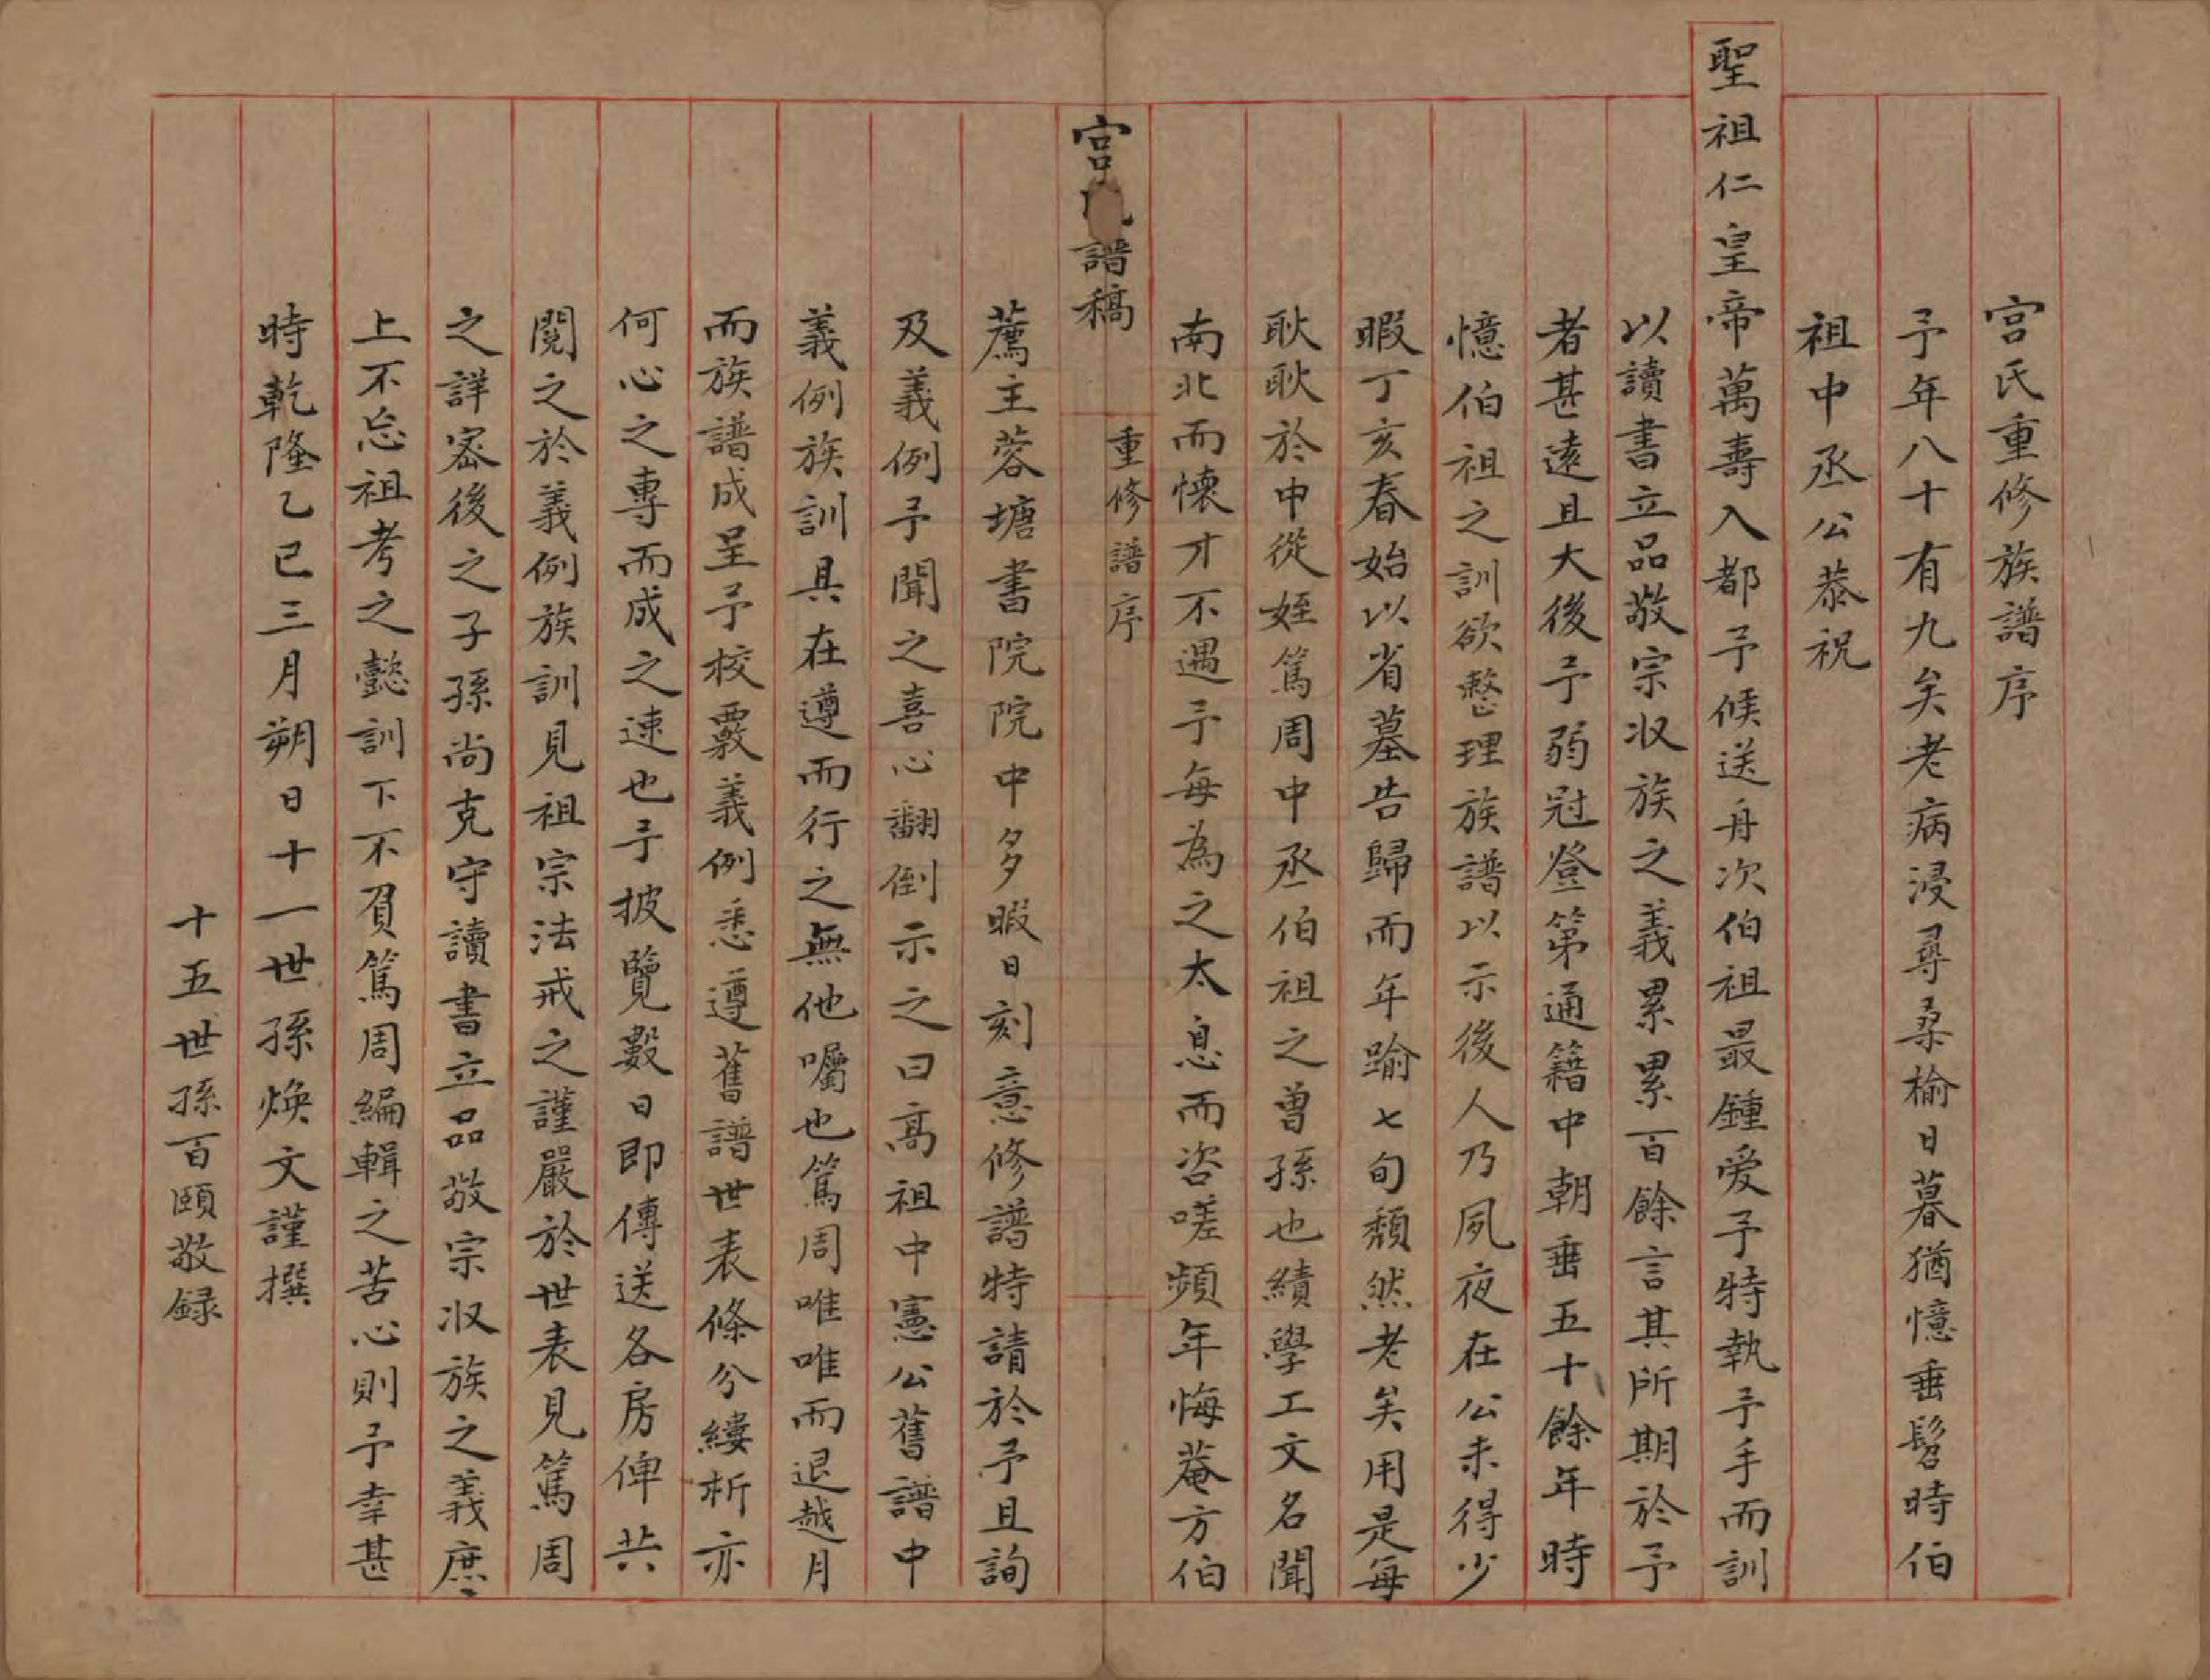 宫氏重修族譜序
予年八十有九矣老病浸尋桑榆日暮猶憶垂髫時伯
祖中丞公恭祝
聖祖仁皇帝萬壽入都予候送舟次伯祖最鍾爱予特執予手而訓
以讀書立品敬宗収族之義累累百餘言其所期於予
者甚遠且大後予弱冠登第通籍中朝垂五十餘年時
憶伯祖之訓欲整理族譜以示後人乃夙夜在公未得少
暇丁亥春始以省墓告歸而年踰七旬頽然老矣用是每
耿耿於中從姪篤周中丞伯祖之曽孫也績學工文名聞
南北而懷才不遇予每為之太息而咨嗟頻年悔菴方伯
宫 譜稿 重修譜序
薦主蓉塘書院院中多暇日刻意修譜特請於予且詢
及義例予聞之喜心翻倒示之曰高祖中憲公舊譜中
義例族訓具在遵而行之無他囑也篤周唯唯而退越月
而族譜成呈予校覈義例悉遵舊譜世表條分縷析亦
何心之專而成之速也予披覽數日即傳送各房俾共
閱之於義例族訓見祖宗法戒之謹嚴於世表見篤周
之詳宻後之子孫尚克守讀書立品敬宗収族之義庶
上不忘祖考之懿訓下不負篤周編輯之苦心則予幸甚
時乾隆乙巳三月朔日十一世孫焕文謹撰
十五世孫百頤敬録